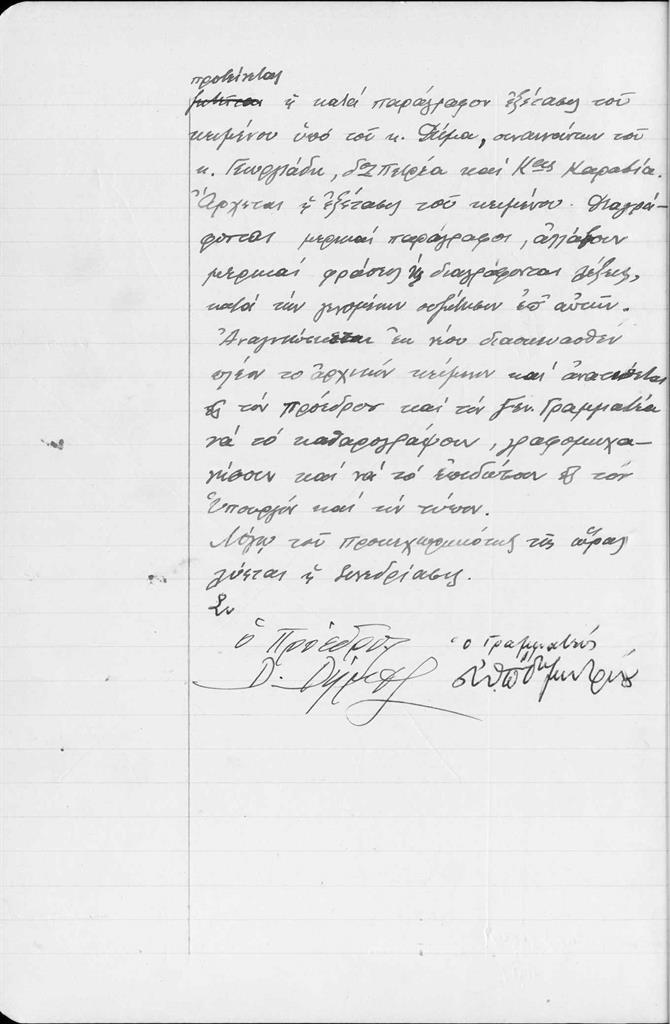 προτείνεται
ἡ κατά παράγραφον ἐξέτασις τοῦ
κειμένου ὑπό τοῦ κ. Δήμα, συναινούντων τοῦ
κ. Γεωργιάδη, δος Πιερέα καί Κας Καραβία.
Ἄρχεται ἡ ἐξέτασις τοῦ κειμένου. Διαγρά-
φονται μερικαί παράγραφοι, ἀλλάζουν
μερικαί φράσεις ἤ διαγράφονται λέξεις,
κατά τήν γενομένην συζήτησιν ἐπ' αὐτῶν.
Ἀναγινώσκεται ἐκ νέου διασκευασθέν
πλέον τό ἀρχικόν κείμενον καί ἀνατίθεται
εἰς τόν πρόεδρον καί τόν Γεν. Γραμματέα
νά τό καθαρογράψουν, γραφομηχα-
νήσουν καί νά τό ἐπιδώσουν εἰς τόν
Ὑπουργόν καί τόν τύπον.
Λόγῳ τοῦ προκεχωρημένου τῆς ὥρας
λύεται ἡ Συνεδρίασις.
Συ
Ὁ Πρόεδρος ὁ Γραμματεύς